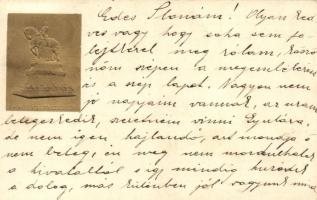 Édes Ilonám! Olyan ked
ves vagy hogy soha sem fe
lejtkezel meg rólam, kösz
nöm szépen a megemlékezést
és a szép lapot. Nagyon nem
jó napjaim vannak, az uram
betegeskedik, szeretném vinni Gyulára,
de nem igen hajlandó, azt mondja ő
nem beteg, én meg nem mozdulhatok
a hivatalból s így mindig húzódik
a dolog, más különben jól vagyunk